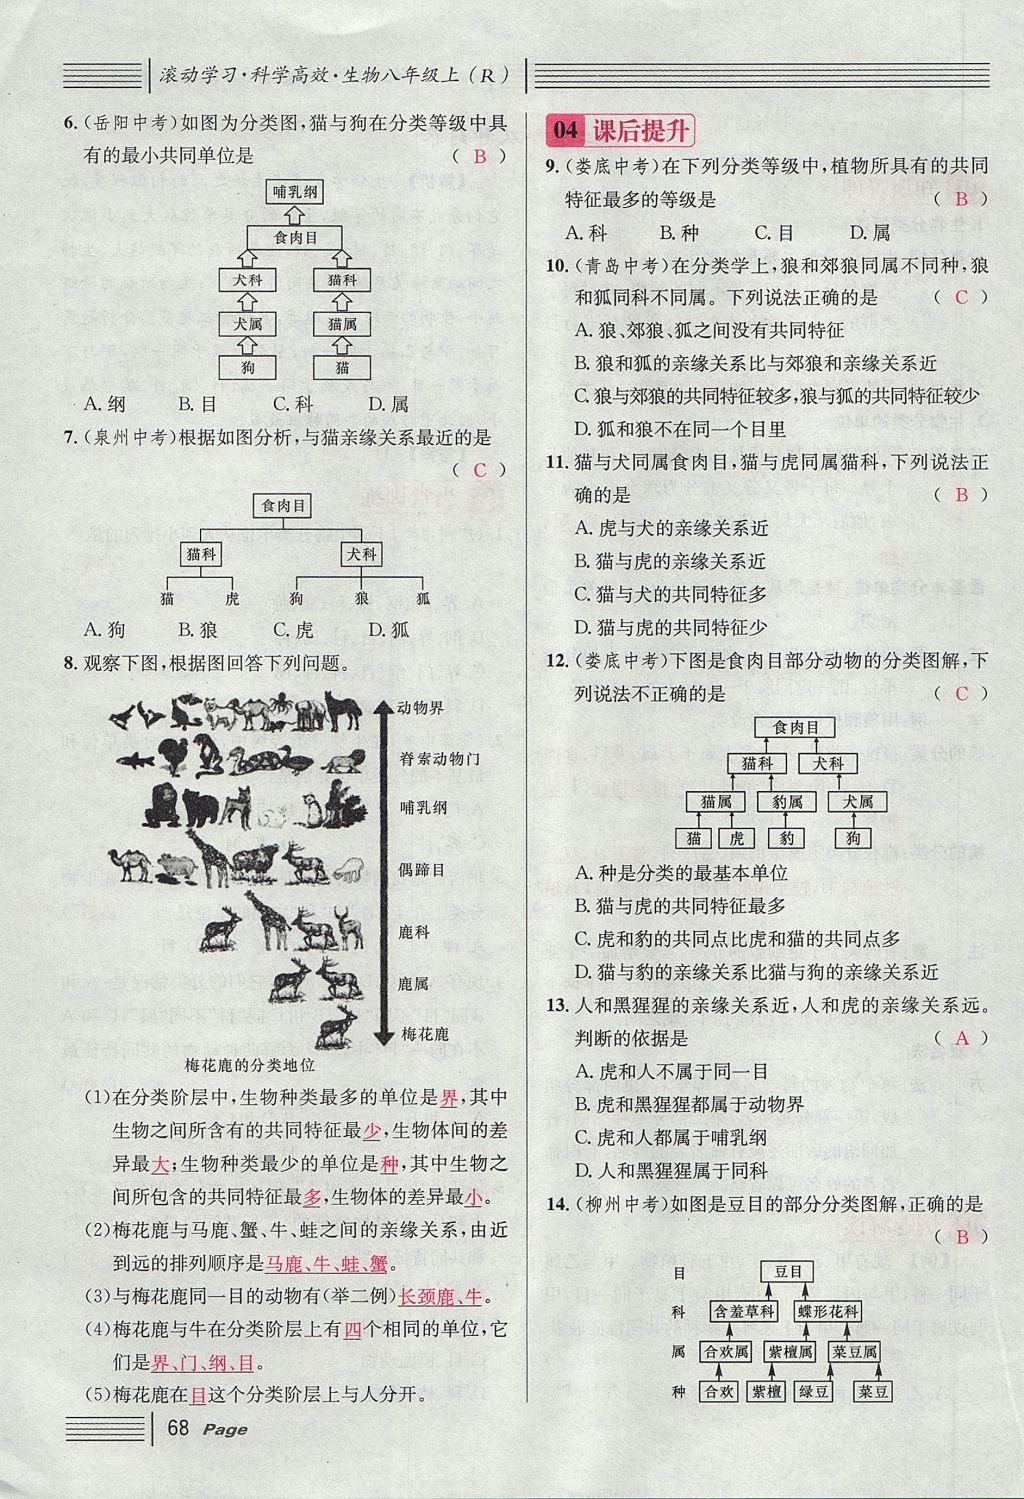 滚动学习·科学高效·生物八年级上(R)
6.(岳阳中考)如图为分类图,猫与狗在分类等级中具
有的最小共同单位是 ( B )
哺乳纲
食肉目
犬科 猫科
犬属 猫属
狗 猫
A.纲 B.目 C.科 D.属
7.(泉州中考)根据如图分析,与猫亲缘关系最近的是
( C )
食肉目
猫科 犬科
猫 虎 狗 狼 狐
A.狗 B.狼 C.虎 D.狐
8.观察下图,根据图回答下列问题。
动物界
脊索动物门
哺乳纲
偶蹄目
鹿科
鹿属
梅花鹿
梅花鹿的分类地位
(1)在分类阶层中,生物种类最多的单位是界,其中
生物之间所含有的共同特征最少,生物体间的差
异最大;生物种类最少的单位是种,其中生物之
间所包含的共同特征最多,生物体的差异最小。
(2)梅花鹿与马鹿、蟹、牛、蛙之间的亲缘关系,由近
到远的排列顺序是马鹿、牛、蛙、蟹。
(3)与梅花鹿同一目的动物有(举二例)长颈鹿、牛。
(4)梅花鹿与牛在分类阶层上有四个相同的单位,它
们是界、门、纲、目。
(5)梅花鹿在目这个分类阶层上与人分开。
68 Page
04 课后提升
9.(娄底中考)在下列分类等级中,植物所具有的共同
特征最多的等级是 ( B )
A.科 B.种 C.目 D.属
10.(青岛中考)在分类学上,狼和郊狼同属不同种,狼
和狐同科不同属。下列说法正确的是 ( C )
A.狼、郊狼、狐之间没有共同特征
B.狼和狐的亲缘关系比与郊狼和亲缘关系近
C.狼与郊狼的共同特征较多,狼与狐的共同特征较少
D.狐和狼不在同一个目里
11.猫与犬同属食肉目,猫与虎同属猫科,下列说法正
确的是 ( B )
A.虎与犬的亲缘关系近
B.猫与虎的亲缘关系近
C.猫与犬的共同特征多
D.猫与虎的共同特征少
12.(娄底中考)下图是食肉目部分动物的分类图解,下
列说法不正确的是 ( C )
食肉目
猫科 犬科
猫属 豹属 犬属
猫 虎 豹 狗
A.种是分类的最基本单位
B.猫与虎的共同特征最多
C.虎和豹的共同点比虎和猫的共同点多
D.猫与豹的亲缘关系比猫与狗的亲缘关系近
13.人和黑猩猩的亲缘关系近,人和虎的亲缘关系远。
判断的依据是 ( A )
A.虎和人不属于同一目
B.虎和黑猩猩都属于动物界
C.虎和人都属于哺乳纲
D.人和黑猩猩属于同科
14.(柳州中考)如图是豆目的部分分类图解,正确的是
( B )
目 豆目
科 含羞草科 蝶形花科
属 合欢属 紫檀属 菜豆属
种 合欢 紫檀 绿豆 菜豆